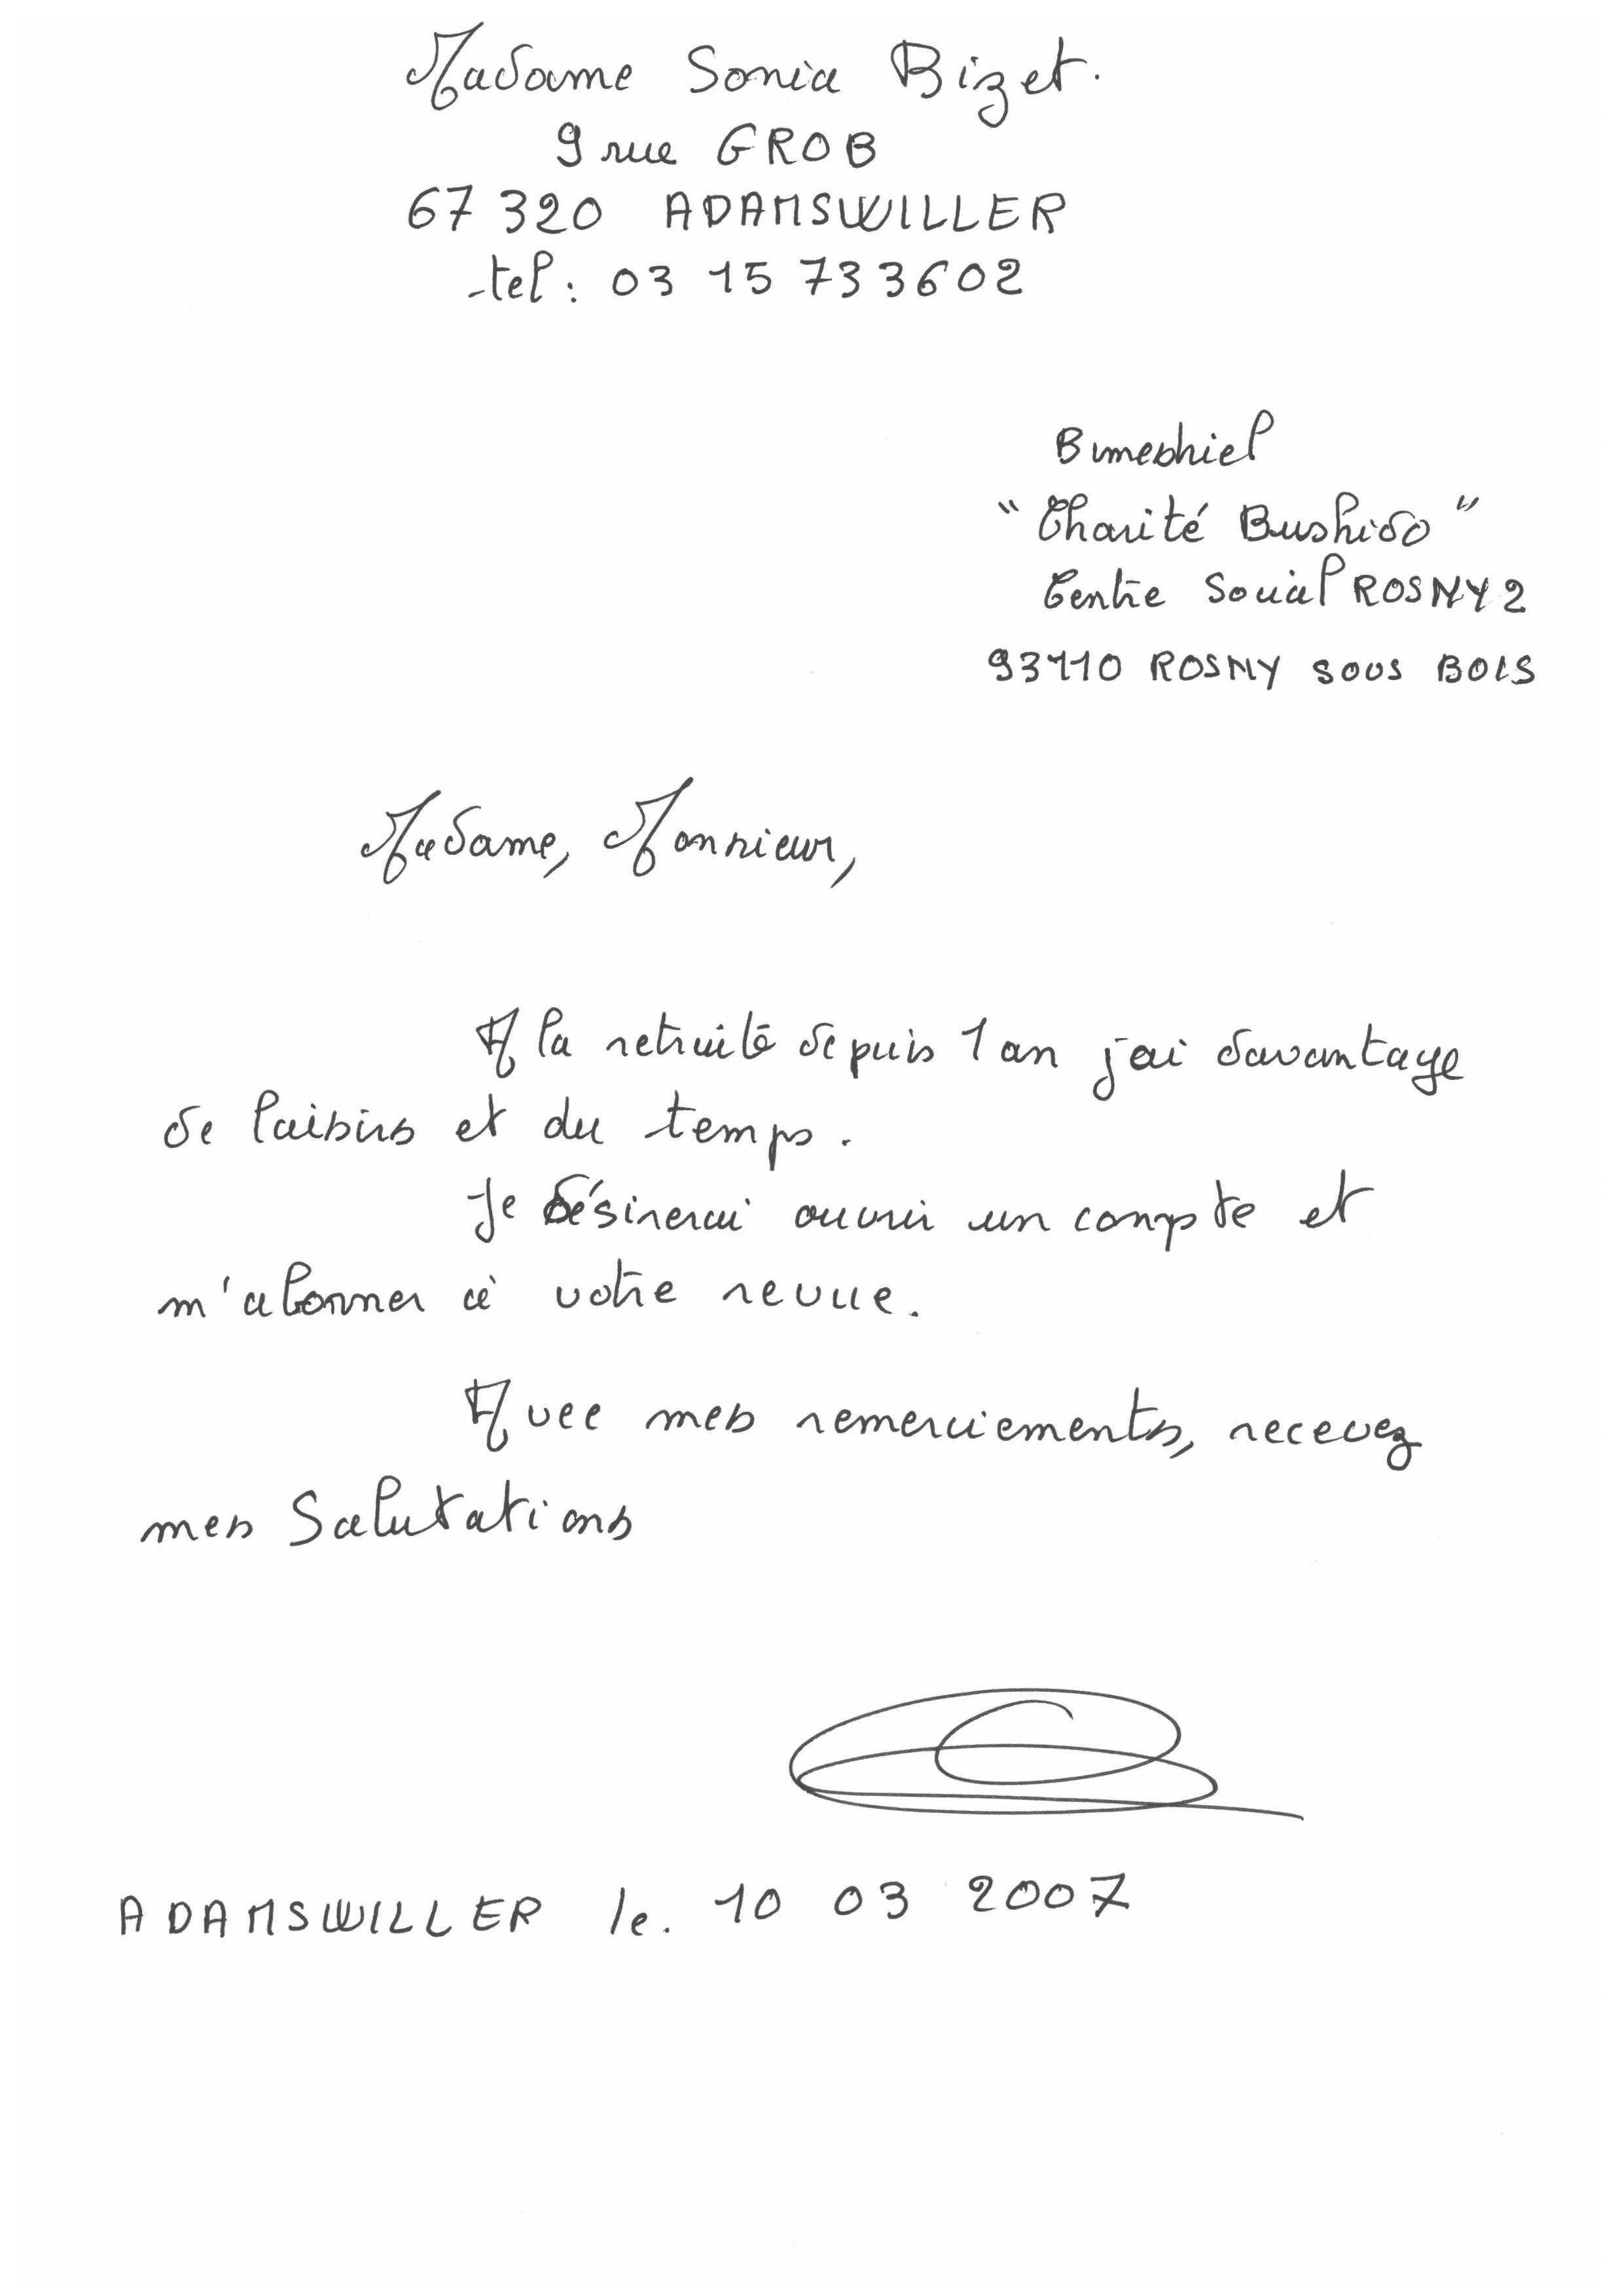 Madame Sonia Bizet.
9 rue GROB
67 320 ADAMSWILLER
tel : 03 15 733602
Bimestriel
"Charité Bushido"
Centre Social ROSNY 2
93110 ROSNY SOUS BOIS
Madame, Monsieur,
A la retraité depuis 1 an j'ai davantage
de loisirs et du temps.
Je désirerai ouvrir un compte et
m'abonner à votre revue.
Avec mes remerciements, recevez
mes Salutations
ADAMSWILLER le. 10 03 2007